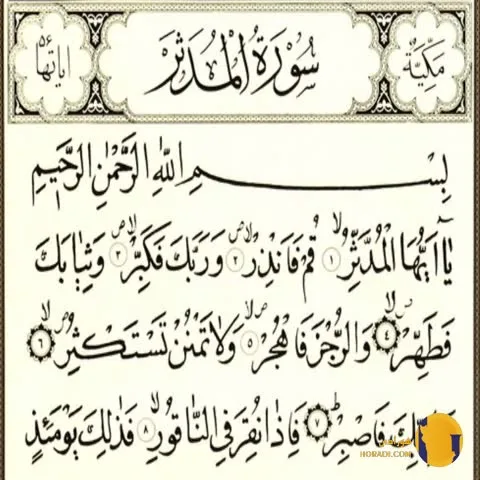 مكية
سورة المدثر
اياتها ٥٦
بِسْمِ اللهِ الرَّحْمٰنِ الرَّحِيمِ
يَا اَيُّهَا الْمُدَّثِّرُۙ ١ قُمْ فَاَنْذِرْۙ ٢ وَرَبَّكَ فَكَبِّرْۙ ٣ وَثِيَابَكَ
فَطَهِّرْۙ ٤ وَالرُّجْزَ فَاهْجُرْۙ ٥ وَلَا تَمْنُنْ تَسْتَكْثِرُۙ ٦
فَاصْبِرْۜ ٧ فَاِذَا نُقِرَ فِي النَّاقُورِۙ ٨ فَذٰلِكَ يَوْمَئِذٍ
HORADI.COM